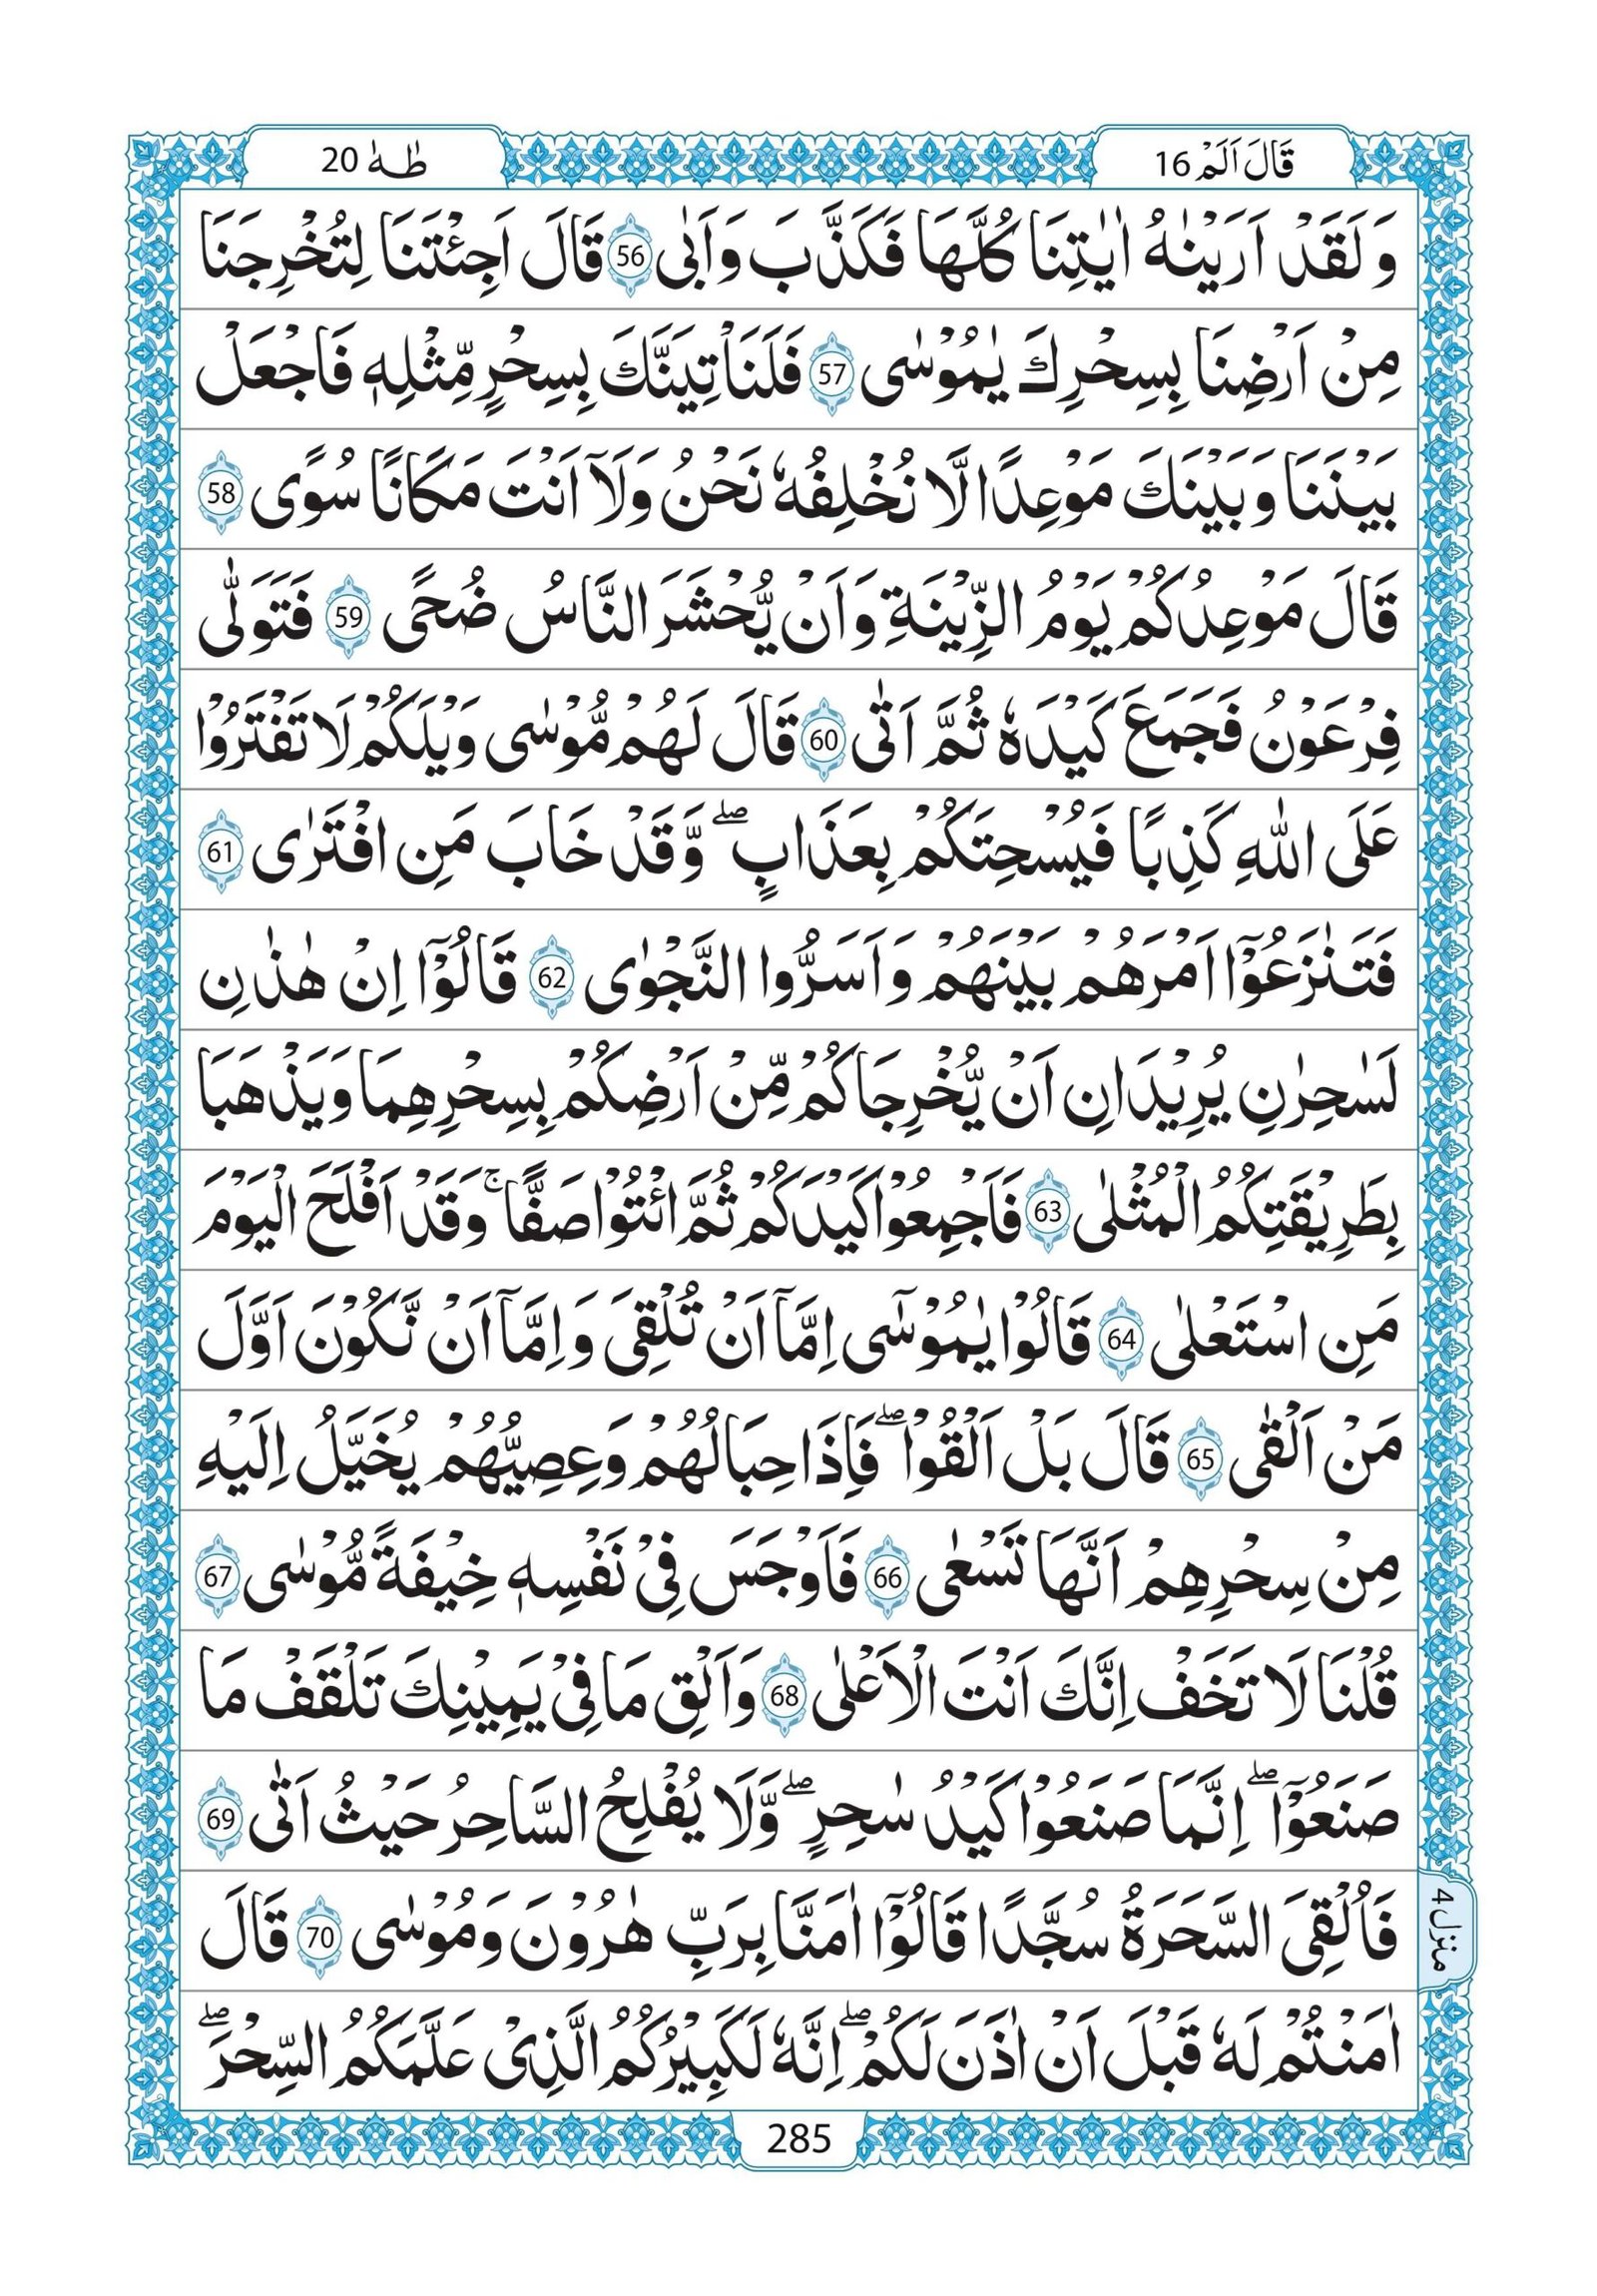 قَالَ اَلَمْ 16
طٰـهٰ 20
وَلَقَدْ اَرَيْنٰهُ اٰيٰتِنَا كُلَّهَا فَكَذَّبَ وَاَبٰى 56 قَالَ اَجِئْتَنَا لِتُخْرِجَنَا
مِنْ اَرْضِنَا بِسِحْرِكَ يٰمُوْسٰى 57 فَلَنَاْتِيَنَّكَ بِسِحْرٍ مِّثْلِهٖ فَاجْعَلْ
بَيْنَنَا وَبَيْنَكَ مَوْعِدًا لَّا نُخْلِفُهٗ نَحْنُ وَلَاۤ اَنْتَ مَكَانًا سُوًى 58
قَالَ مَوْعِدُكُمْ يَوْمُ الزِّيْنَةِ وَاَنْ يُّحْشَرَ النَّاسُ ضُحًى 59 فَتَوَلّٰى
فِرْعَوْنُ فَجَمَعَ كَيْدَهٗ ثُمَّ اَتٰى 60 قَالَ لَهُمْ مُّوْسٰى وَيْلَكُمْ لَا تَفْتَرُوْا
عَلَى اللّٰهِ كَذِبًا فَيُسْحِتَكُمْ بِعَذَابٍ ۖ وَّقَدْ خَابَ مَنِ افْتَرٰى 61
فَتَنٰزَعُوْۤا اَمْرَهُمْ بَيْنَهُمْ وَاَسَرُّوا النَّجْوٰى 62 قَالُوْۤا اِنْ هٰذٰنِ
لَسٰحِرٰنِ يُرِيْدَانِ اَنْ يُّخْرِجَاكُمْ مِّنْ اَرْضِكُمْ بِسِحْرِهِمَا وَيَذْهَبَا
بِطَرِيْقَتِكُمُ الْمُثْلٰى 63 فَاَجْمِعُوْا كَيْدَكُمْ ثُمَّ ائْتُوْا صَفًّا ۚ وَقَدْ اَفْلَحَ الْيَوْمَ
مَنِ اسْتَعْلٰى 64 قَالُوْا يٰمُوْسٰۤى اِمَّاۤ اَنْ تُلْقِىَ وَاِمَّاۤ اَنْ نَّكُوْنَ اَوَّلَ
مَنْ اَلْقٰى 65 قَالَ بَلْ اَلْقُوْا ۖ فَاِذَا حِبَالُهُمْ وَعِصِيُّهُمْ يُخَيَّلُ اِلَيْهِ
مِنْ سِحْرِهِمْ اَنَّهَا تَسْعٰى 66 فَاَوْجَسَ فِىْ نَفْسِهٖ خِيْفَةً مُّوْسٰى 67
قُلْنَا لَا تَخَفْ اِنَّكَ اَنْتَ الْاَعْلٰى 68 وَاَلْقِ مَا فِىْ يَمِيْنِكَ تَلْقَفْ مَا
صَنَعُوْۤا ۖ اِنَّمَا صَنَعُوْا كَيْدُ سٰحِرٍ ۖ وَّلَا يُفْلِحُ السَّاحِرُ حَيْثُ اَتٰى 69
فَاُلْقِىَ السَّحَرَةُ سُجَّدًا قَالُوْۤا اٰمَنَّا بِرَبِّ هٰرُوْنَ وَمُوْسٰى 70 قَالَ
اٰمَنْتُمْ لَهٗ قَبْلَ اَنْ اٰذَنَ لَكُمْ ۖ اِنَّهٗ لَكَبِيْرُكُمُ الَّذِىْ عَلَّمَكُمُ السِّحْرَ ۖ
منزل 4
285